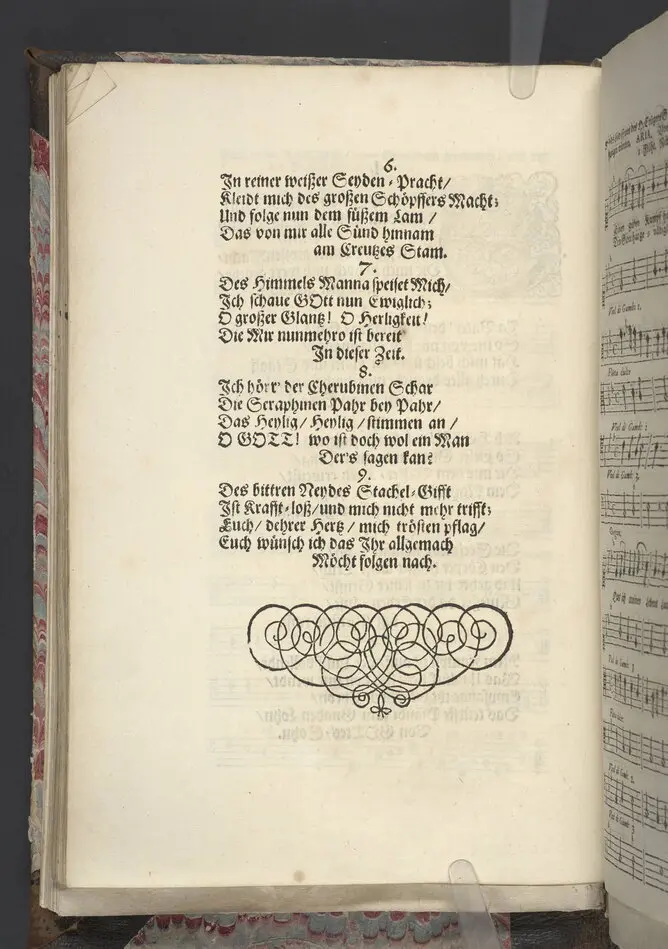 6.
In reiner weißer Seyden-Pracht/
Kleidt mich des großen Schöpffers Macht;
Und folge nun dem süßem Lam /
Das von mir alle Sünd hinnam
am Creutzes Stam.
7.
Des Himmels Manna speiset Mich/
Ich schaue GOtt nun Ewiglich;
O großer Glantz! O Herligkeit!
Die Mir nunmehro ist bereit
In dieser Zeit.
8.
Ich hörr der Cherubinen Schar
Die Seraphinen Pahr bey Pahr/
Das Heylig/ Heylig /stimmen an /
O GOTT! wo ist doch wol ein Man
Der's sagen kan?
9.
Des bittren Neydes Stachel-Gifft
Ist Krafft-loß/und mich nicht mehr trifft;
Euch/ dehrer Hertz / mich trösten pflag/
Euch wünsch ich das Ihr allgemach
Möcht folgen nach.
ARIA.
Viol di Gamb: 1.
Flauto dulce
Viol di Gamb: 1
Viol di Gamb: 2
Viol di Gamb: 2.